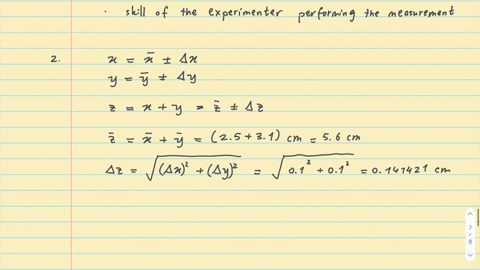 · skill of the experimenter performing the measurement
2. x = x̄ ± Δx
y = ȳ ± Δy
z = x + y = z̄ ± Δz
z̄ = x̄ + ȳ = (2.5+3.1) cm = 5.6 cm
Δz = √((Δx)² + (Δy)²) = √(0.1² + 0.1²) = 0.141421 cm
7
8